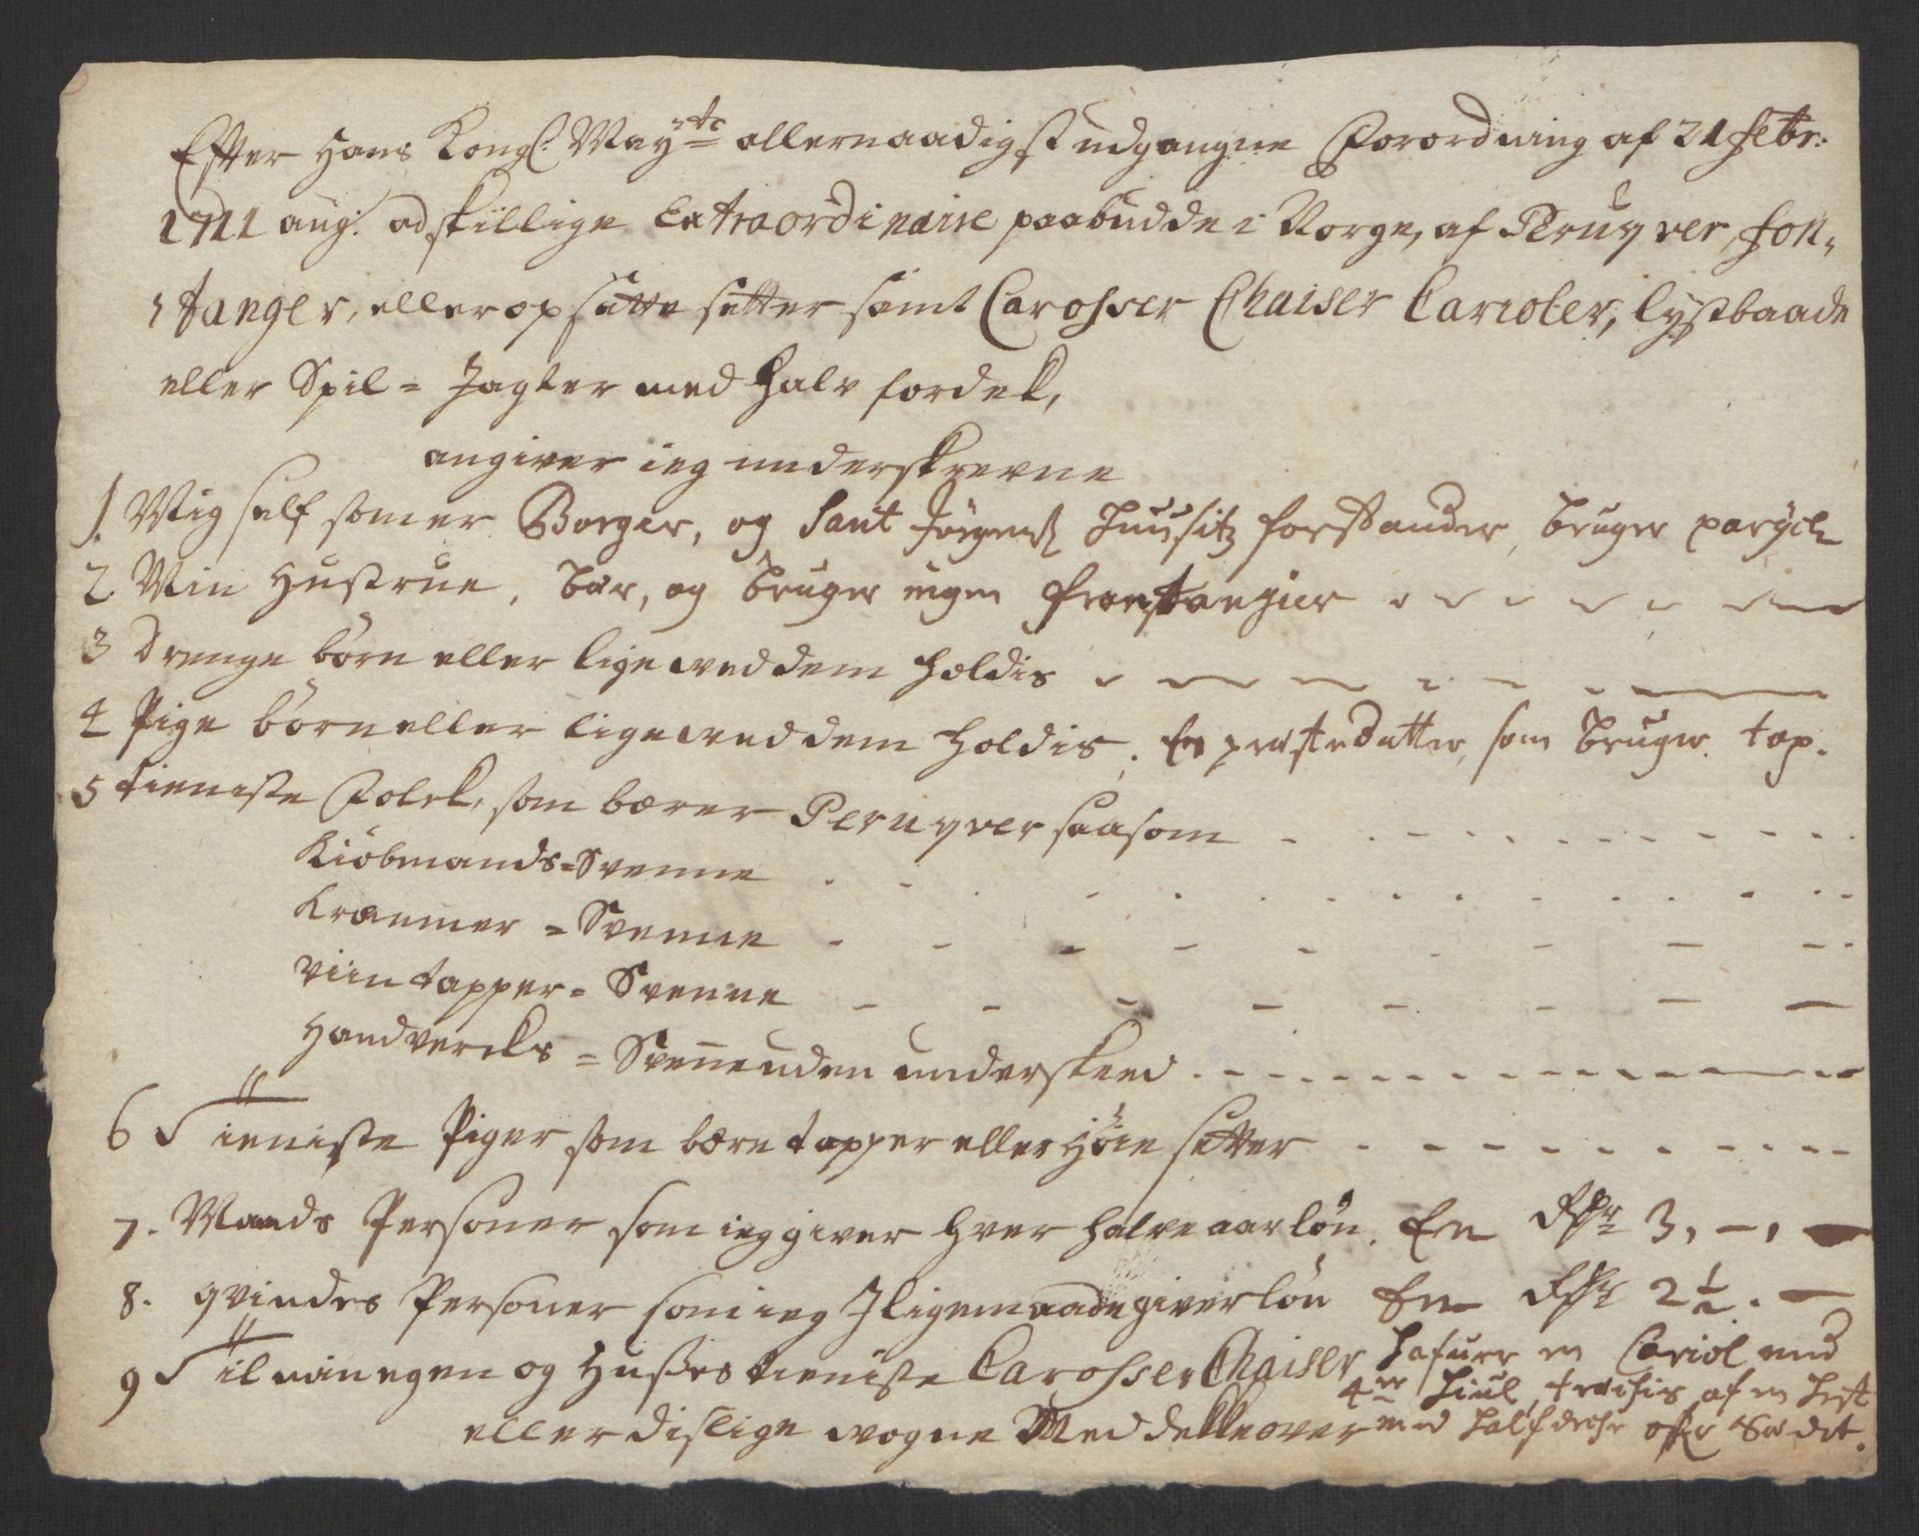 Efter Hans Kongl: May:tz allernaadigst udgangne Forordning af 21 Febr:
1711 ang: adskillige Extraordinaire paabudde i Norge, af Peruqver, Fon-
tanger, eller opsatte setter samt Carosser Chaiser Carioler, lystbaade
eller Spil-Jagter med halv fordek,
angiver ieg underskrevne
1. Mig self som er Borger, og Sant Jörgens Huusitz forstander, bruger parych
2 Min Hustrue, bær, og bruger ingen frontangier
3 Drenge börn eller lige wed dem holdis
4 Pige börn eller lige wed dem holdis. En præste datter, som bruger top.
5 tieniste Folck, som bærer Peruqver saasom
Kiöbmands-Svenne
Kræmmer-Svenne
Viintapper-Svenne
Handvercks-Svenne uden underskeed
6 Tieniste Piger som bære topper eller Höie setter
7. Mands Personer som ieg giver hver halve aar lön. En Rdr 3,-,-
8. qvindes Personer som ieg Jligemaade giver lön En Rdr 2½.-
9 Til min egen og Husses tieniste Carosser Chaiser hafuer en Cariol med
4er Hiul, trechis af en Hest
eller dislige wogne Med dekke over med half over Sædet.